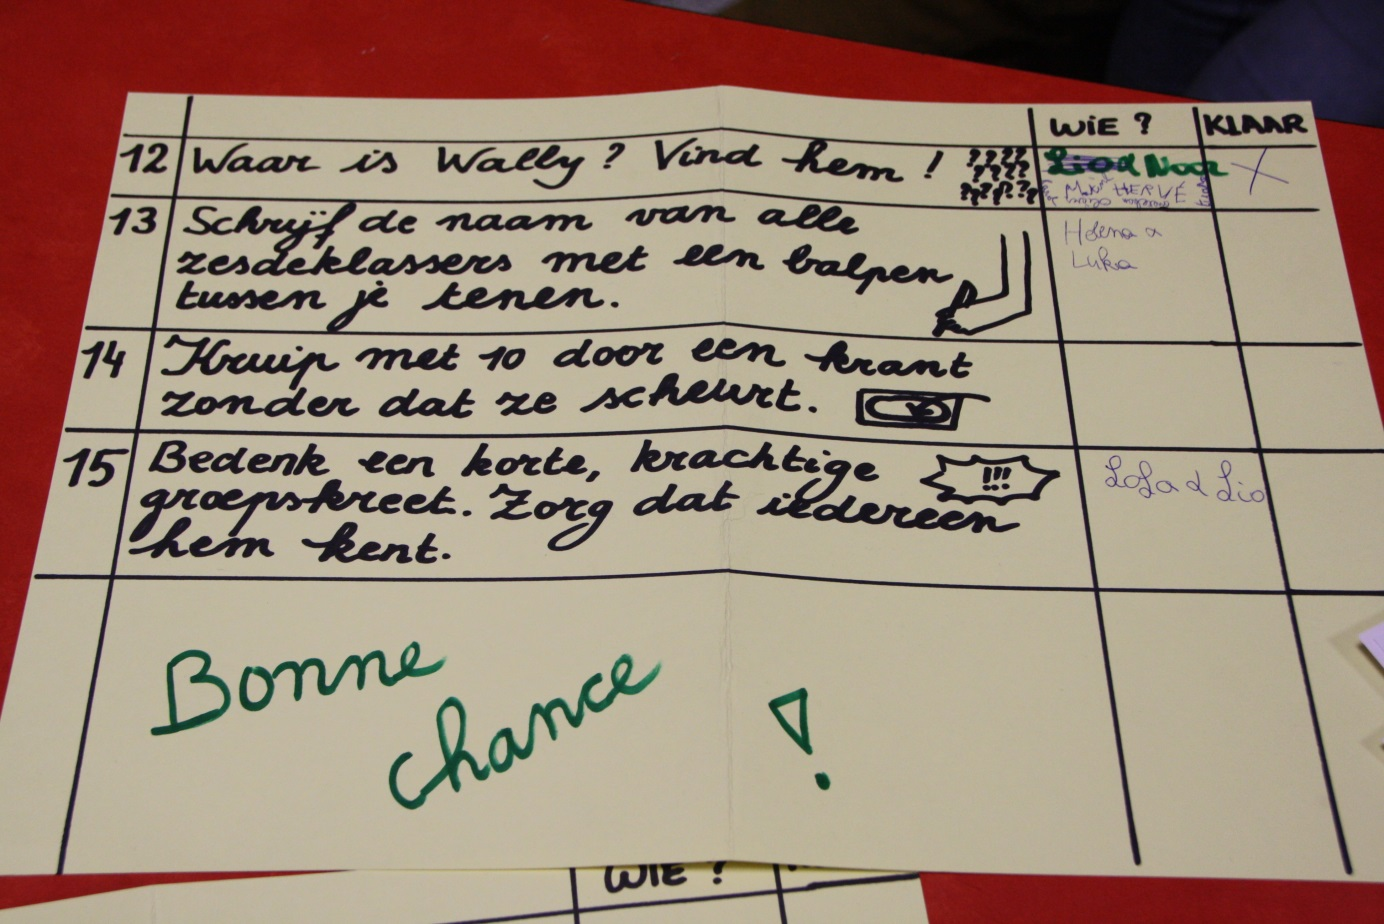 WiE ? KLAAR
12 Waar is Wally ? Vind hem ! ???? ???? ?????? Noor X
HERVÉ
13 Schrijf de naam van alle
zesdeklassers met een balpen
tussen je tenen.
Helena a
Luka
14 Kruip met 10 door een krant
zonder dat ze scheurt.
15 Bedenk een korte, krachtige !!!
groepskreet. Zorg dat iedereen
hem kent.
LoLa & Lio
Bonne
chance !
WiE ?